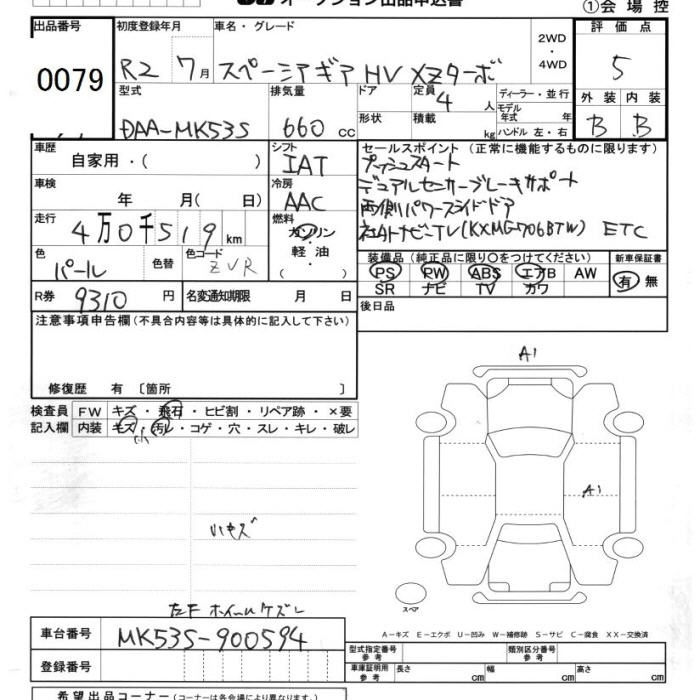 オークション出品申込書
①会場控
出品番号 初度登録年月 車名・グレード 2WD・4WD 評価点
0079 R2 7月 スペーシアギア HV XZターボ 5
型式 排気量 ドア 定員 4 人 ディーラー・並行 外装 内装
DAA-MK53S 660 cc 形状 積載 kg モデル年式 年 ハンドル 左・右 B B
車歴 自家用・( ) シフト IAT
セールスポイント (正常に機能するものに限ります)
プッシュスタート
デュアルセンサーブレーキサポート
両側パワースライドドア
社外ナビTV(KXMG706BTW) ETC
車検 年 月( 日) 冷房 AAC
走行 4万0千519km 燃料 ガソリン・軽油・
色 パール 色替 色コード ZVR
装備品 (純正品に限り○をつけてください) 新車保証書
PS PW ABS エアB AW 有 無
SR ナビ TV カワ
R券 9310 円 名変通知期限 月 日
後日品
注意事項申告欄 (不具合内容等は具体的に記入して下さい)
修復歴 有 〔箇所 〕
検査員 FW キズ・飛石・ヒビ割・リペア跡・×要
記入欄 内装 キズ・汚レ・コゲ・穴・スレ・キレ・破レ
小
A1
A1
小キズ
左F ホイールケズレ
スペア
A-キズ E-エクボ U-凹み W-補修跡 S-サビ C-腐食 XX-交換済
車台番号 MK53S-900594
型式指定番号 参考 類別区分番号 参考
登録番号 車庫証明用 参考 長さ cm 幅 cm 高さ cm
希望出品コーナー (コーナーは各会場により異なります)